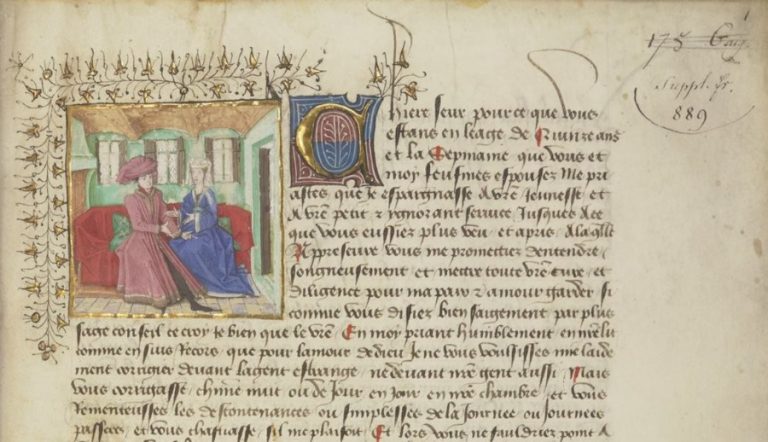 175 Gaig.
Suppl. fr.
889
Chiere seur pour ce que vous
estans en leage de Quinze ans
et la Sepmaine que vous et
moy feusmes espousez Me pri
astes que Je espargnasse a vr̃e Jeunesse et
a vr̃e petit ⁊ ygnorant seruice Jusques a ce
que vous eussiez plus veu et apris A la qlle
Appresure vous me promettiez dentendre
songneusement et mettre toute vr̃e cure et
diligence pour ma paix ⁊ amour garder si
comme vous disiez bien saigement par plus
sage conseil ce croy Je bien que le vr̃e En moy priant humblement en nr̃e lit
comme en suis Recors que pour lamour de dieu Je ne vous voulsisses me laide
ment corrigier deuant la gent estrange ne deuant nr̃e gent aussi Mais
vous corrigasse chũne nuit ou de Jour en Jour en nr̃e chambre et vous
Rementeusses les descontenances ou simplesses de la Journee ou Journees
passees et vous chastiasse sil me plaisoit Et lors vous ne fauldriez point A